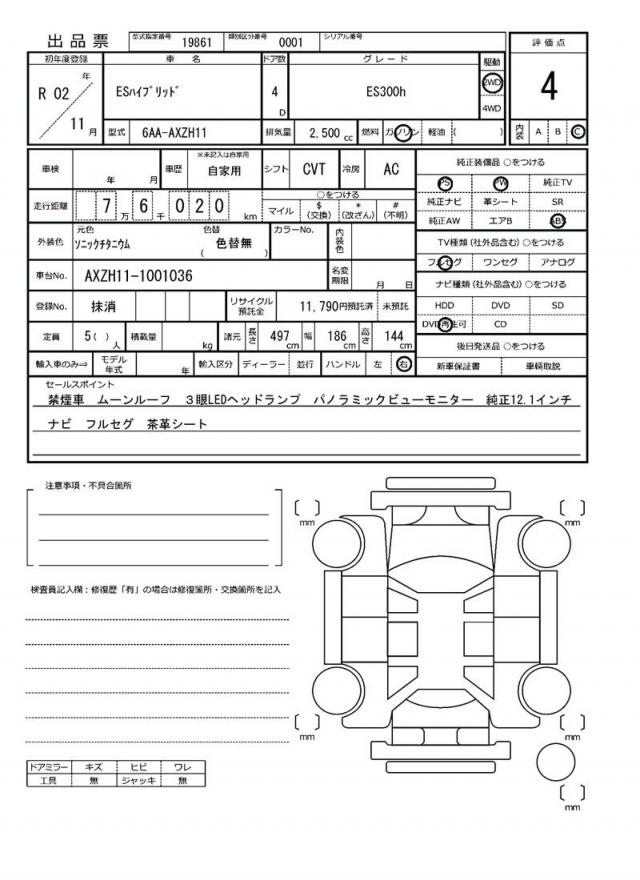 出品票 型式指定番号 19861 類別区分番号 0001 シリアル番号
評価点
4
内装 A B C
初年度登録 車名 ドア数 グレード 駆動
R 02 年 11 月 ESハイブリッド 4 D ES300h 2WD 4WD
型式 6AA-AXZH11 排気量 2,500 cc 燃料 ガソリン 軽油 ( )
車検 年 月 車歴 ※未記入は自家用 自家用 シフト CVT 冷房 AC
走行距離 7 万 6 千 0 2 0 km ○をつける マイル $ (交換) * (改ざん) # (不明)
外装色 元色 ソニックチタニウム 色替 色替無 ( ) カラーNo. 内装色
車台No. AXZH11-1001036 名変期限 月 日
登録No. 抹消 リサイクル預託金 11,790円預託済 未預託
定員 5( ) 人 積載量 kg 諸元 長さ 497 cm 幅 186 cm 高さ 144 cm
輸入車のみ⇒ モデル年式 年 輸入区分 ディーラー 並行 ハンドル 左 右
純正装備品 ○をつける
PS PW 純正TV
純正ナビ 革シート SR
純正AW エアB ABS
TV種類(社外品含む) ○をつける
フルセグ ワンセグ アナログ
ナビ種類(社外品含む) ○をつける
HDD DVD SD
DVD再生可 CD
後日発送品 ○をつける
新車保証書 車輌取説
セールスポイント
禁煙車 ムーンルーフ 3眼LEDヘッドランプ パノラミックビューモニター 純正12.1インチ
ナビ フルセグ 茶革シート
注意事項・不具合箇所
検査員記入欄：修復歴「有」の場合は修復箇所・交換箇所を記入
ドアミラー キズ ヒビ ワレ
工具 無 ジャッキ 無
〔 〕 mm
〔 〕 mm
〔 〕 mm
〔 〕 mm
〔 〕 mm